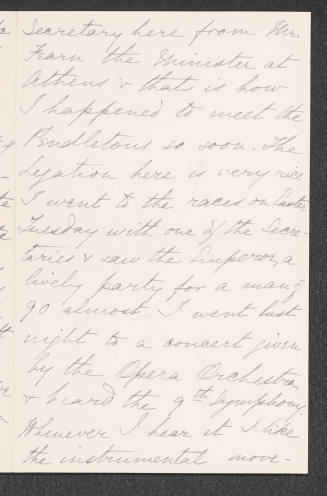 Secretary here from Mr.
Fearn the Minister at
Athens & that is how
I happened to meet the
Pendletons so soon. The
Legation here is very nice
I went to the races on Easter
Tuesday with one of the Secre-
taries & saw the Emperor, a
lively party for a man of
90 almost. I went last
night to a concert given
by the Opera Orchestra,
& heard the 9th Symphony.
Whenever I hear it I like
the instrumental move-